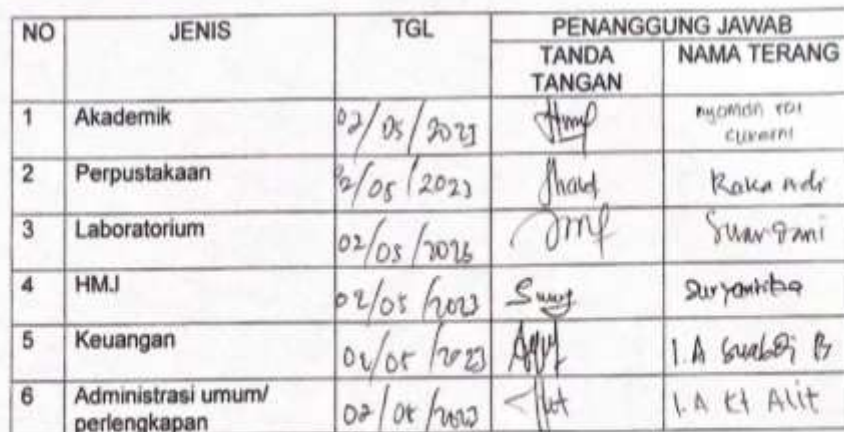 NO JENIS TGL PENANGGUNG JAWAB
TANDA TANGAN NAMA TERANG
1 Akademik 02/05/2023 nyoman
2 Perpustakaan 02/05/2023 Raka Adi
3 Laboratorium 02/05/2023 Suargani
4 HMJ 02/05/2023
5 Keuangan 02/05/2023 I.A B
6 Administrasi umum/
perlengkapan 02/05/2023 I.A Kt Alit